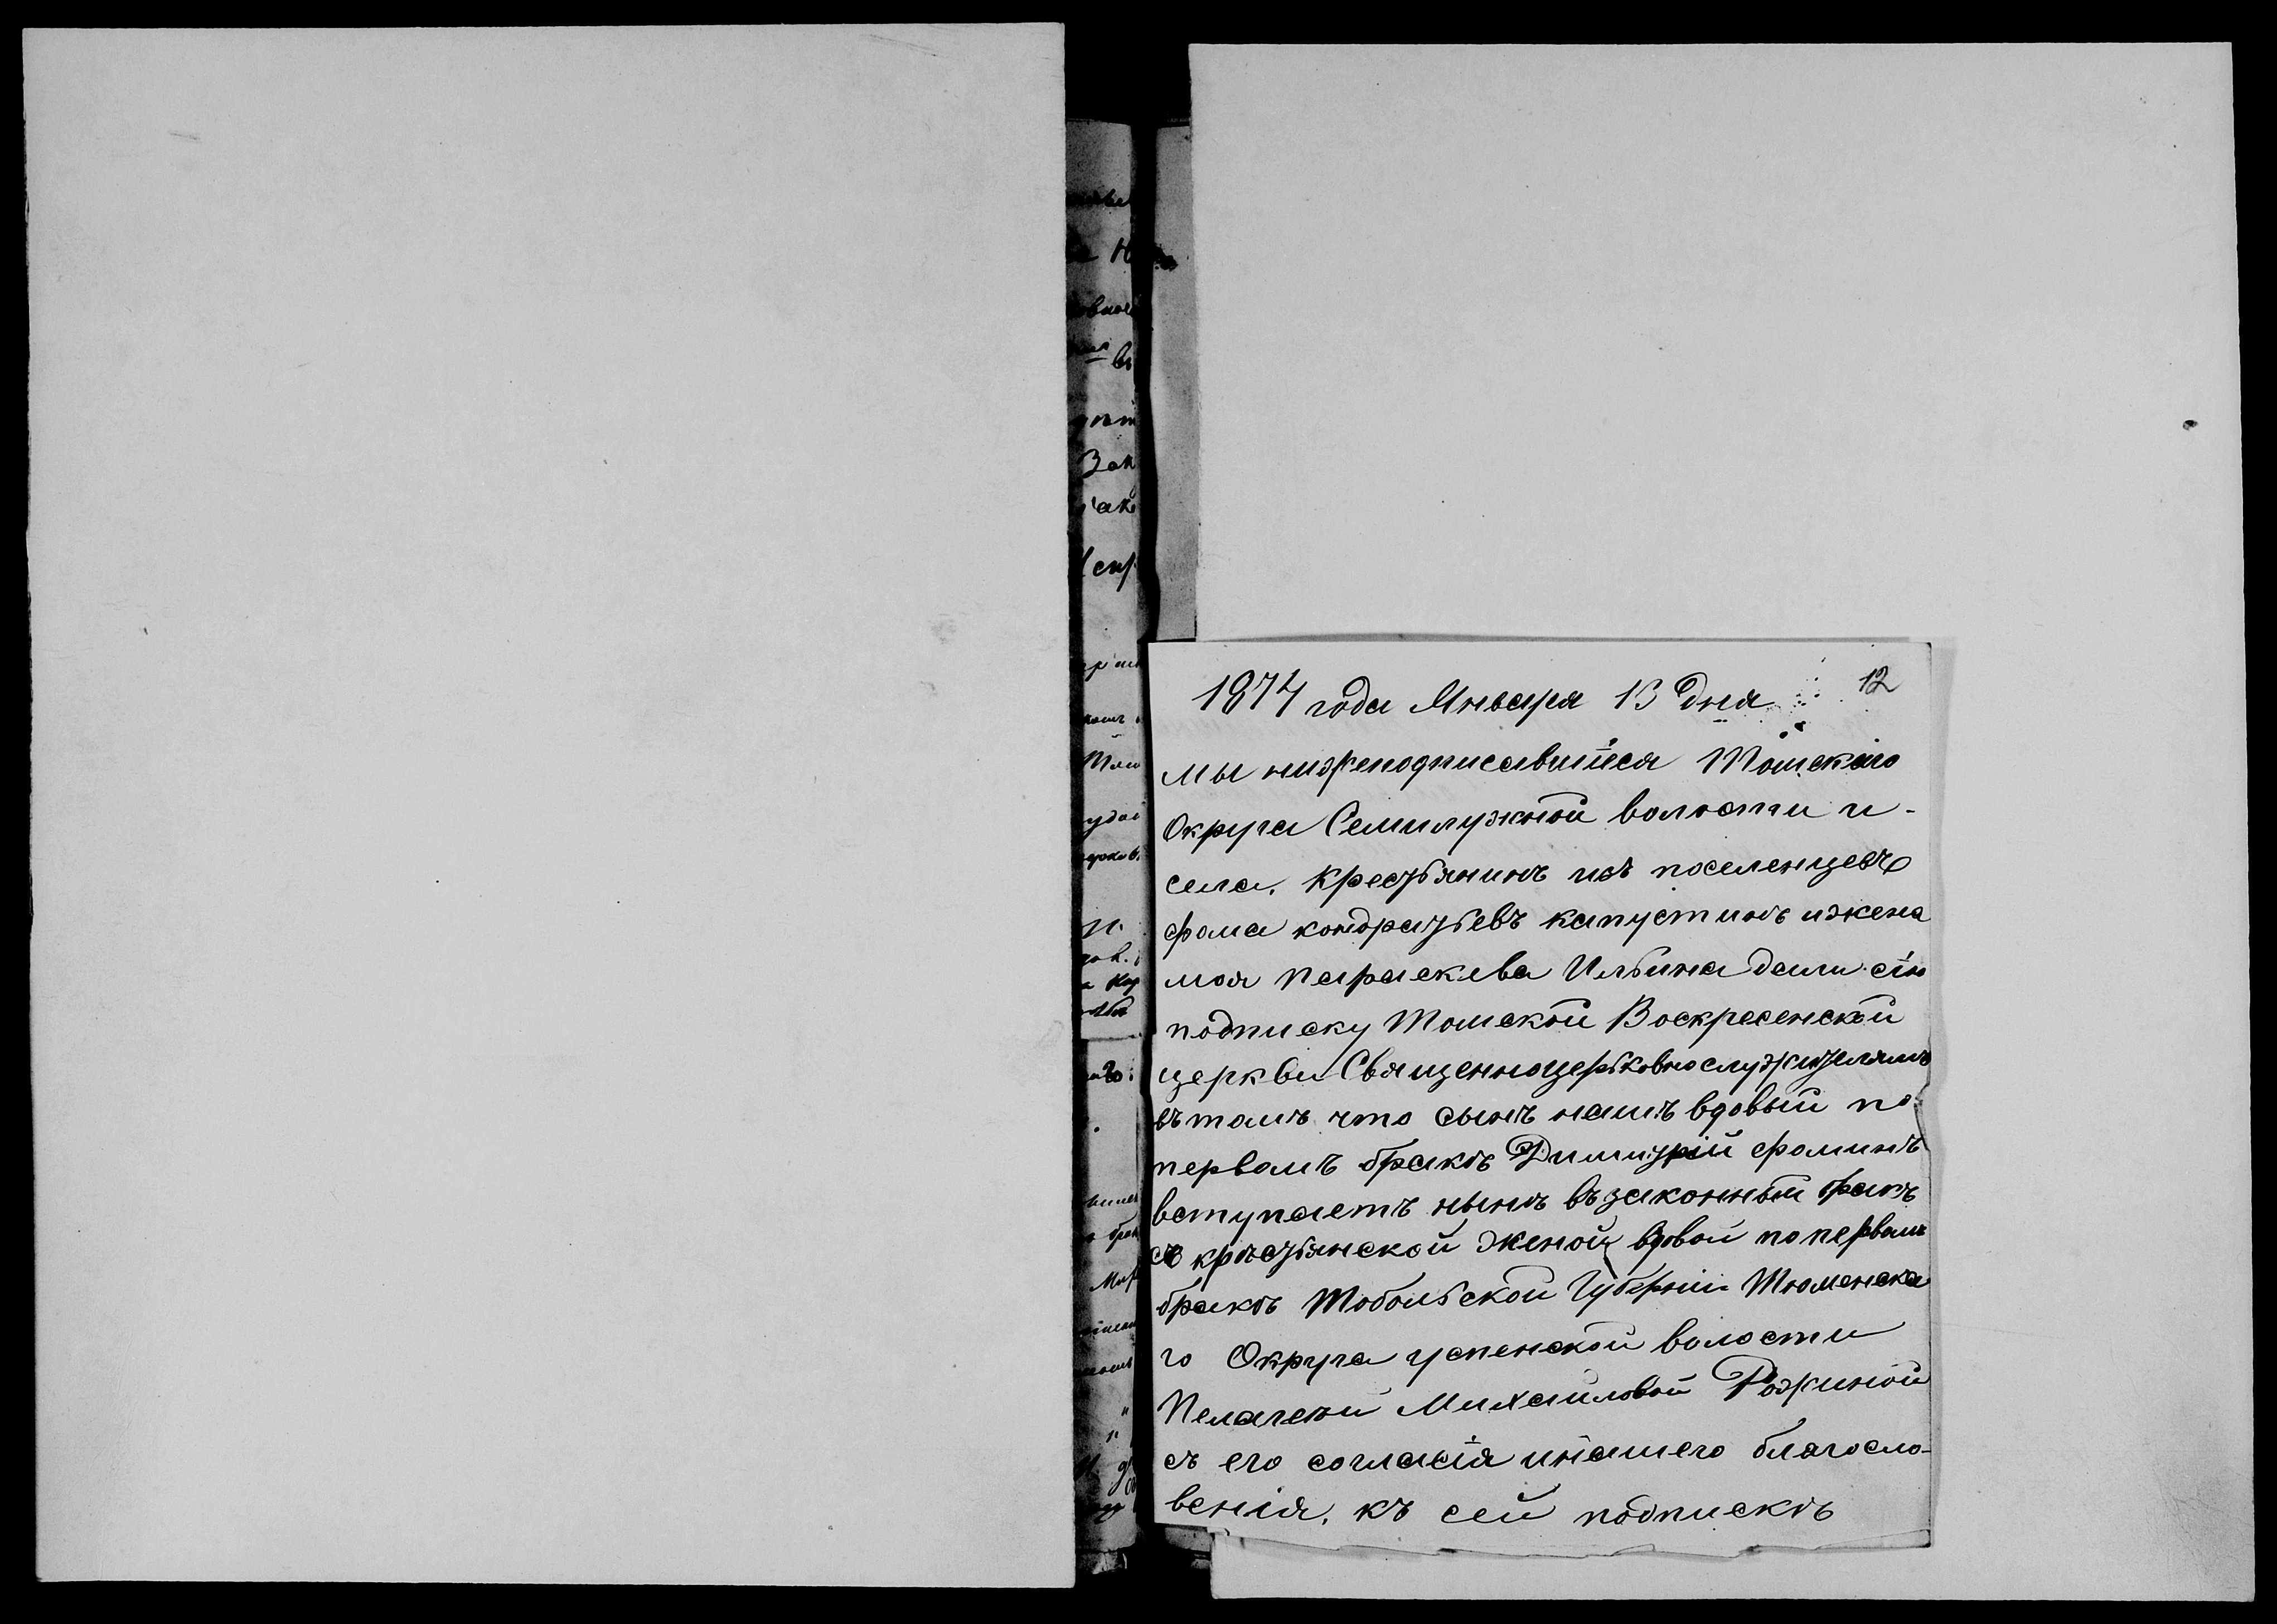 12
1874 года Января 13 дня
мы нижеподписавшіеся Томскаго
Округа Семилужной волости и-
села. Крестьянинъ изъ поселенцевъ
фома кондратьевъ капустинъ и жена
моя параскева Ильина дали сію
подписку Томской Воскресенской
церкви Священноцерьковнослужителямъ
въ томъ что сынъ нашъ вдовый по
первомъ бракѣ Димитрій фоминъ
вступаетъ нынѣ въ законный бракъ
съ крѣстьянской женой вдовой по первомъ
бракѣ Тобольской Губерніи Тюменска
го Округа успенской волости
Пелагеей Михайловой Рожиной
съ его согласія и нашего благосло-
венія. къ сей подпискѣ